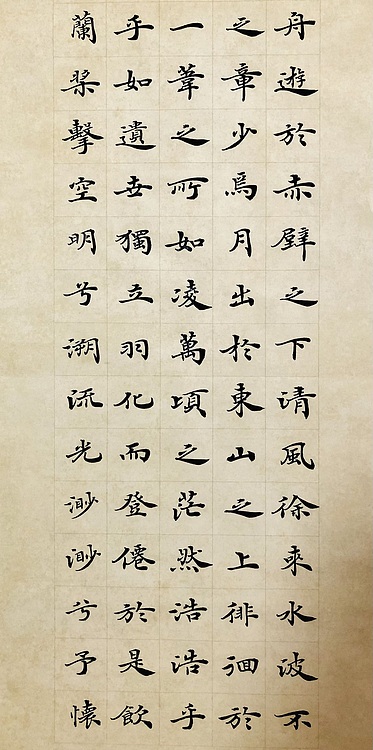 舟遊於赤壁之下清風徐來水波不
之章少焉月出於東山之上徘徊於
一葦之所如凌萬頃之茫然浩浩乎
乎如遺世獨立羽化而登僊於是飲
蘭槳擊空明兮溯流光渺渺兮予懷